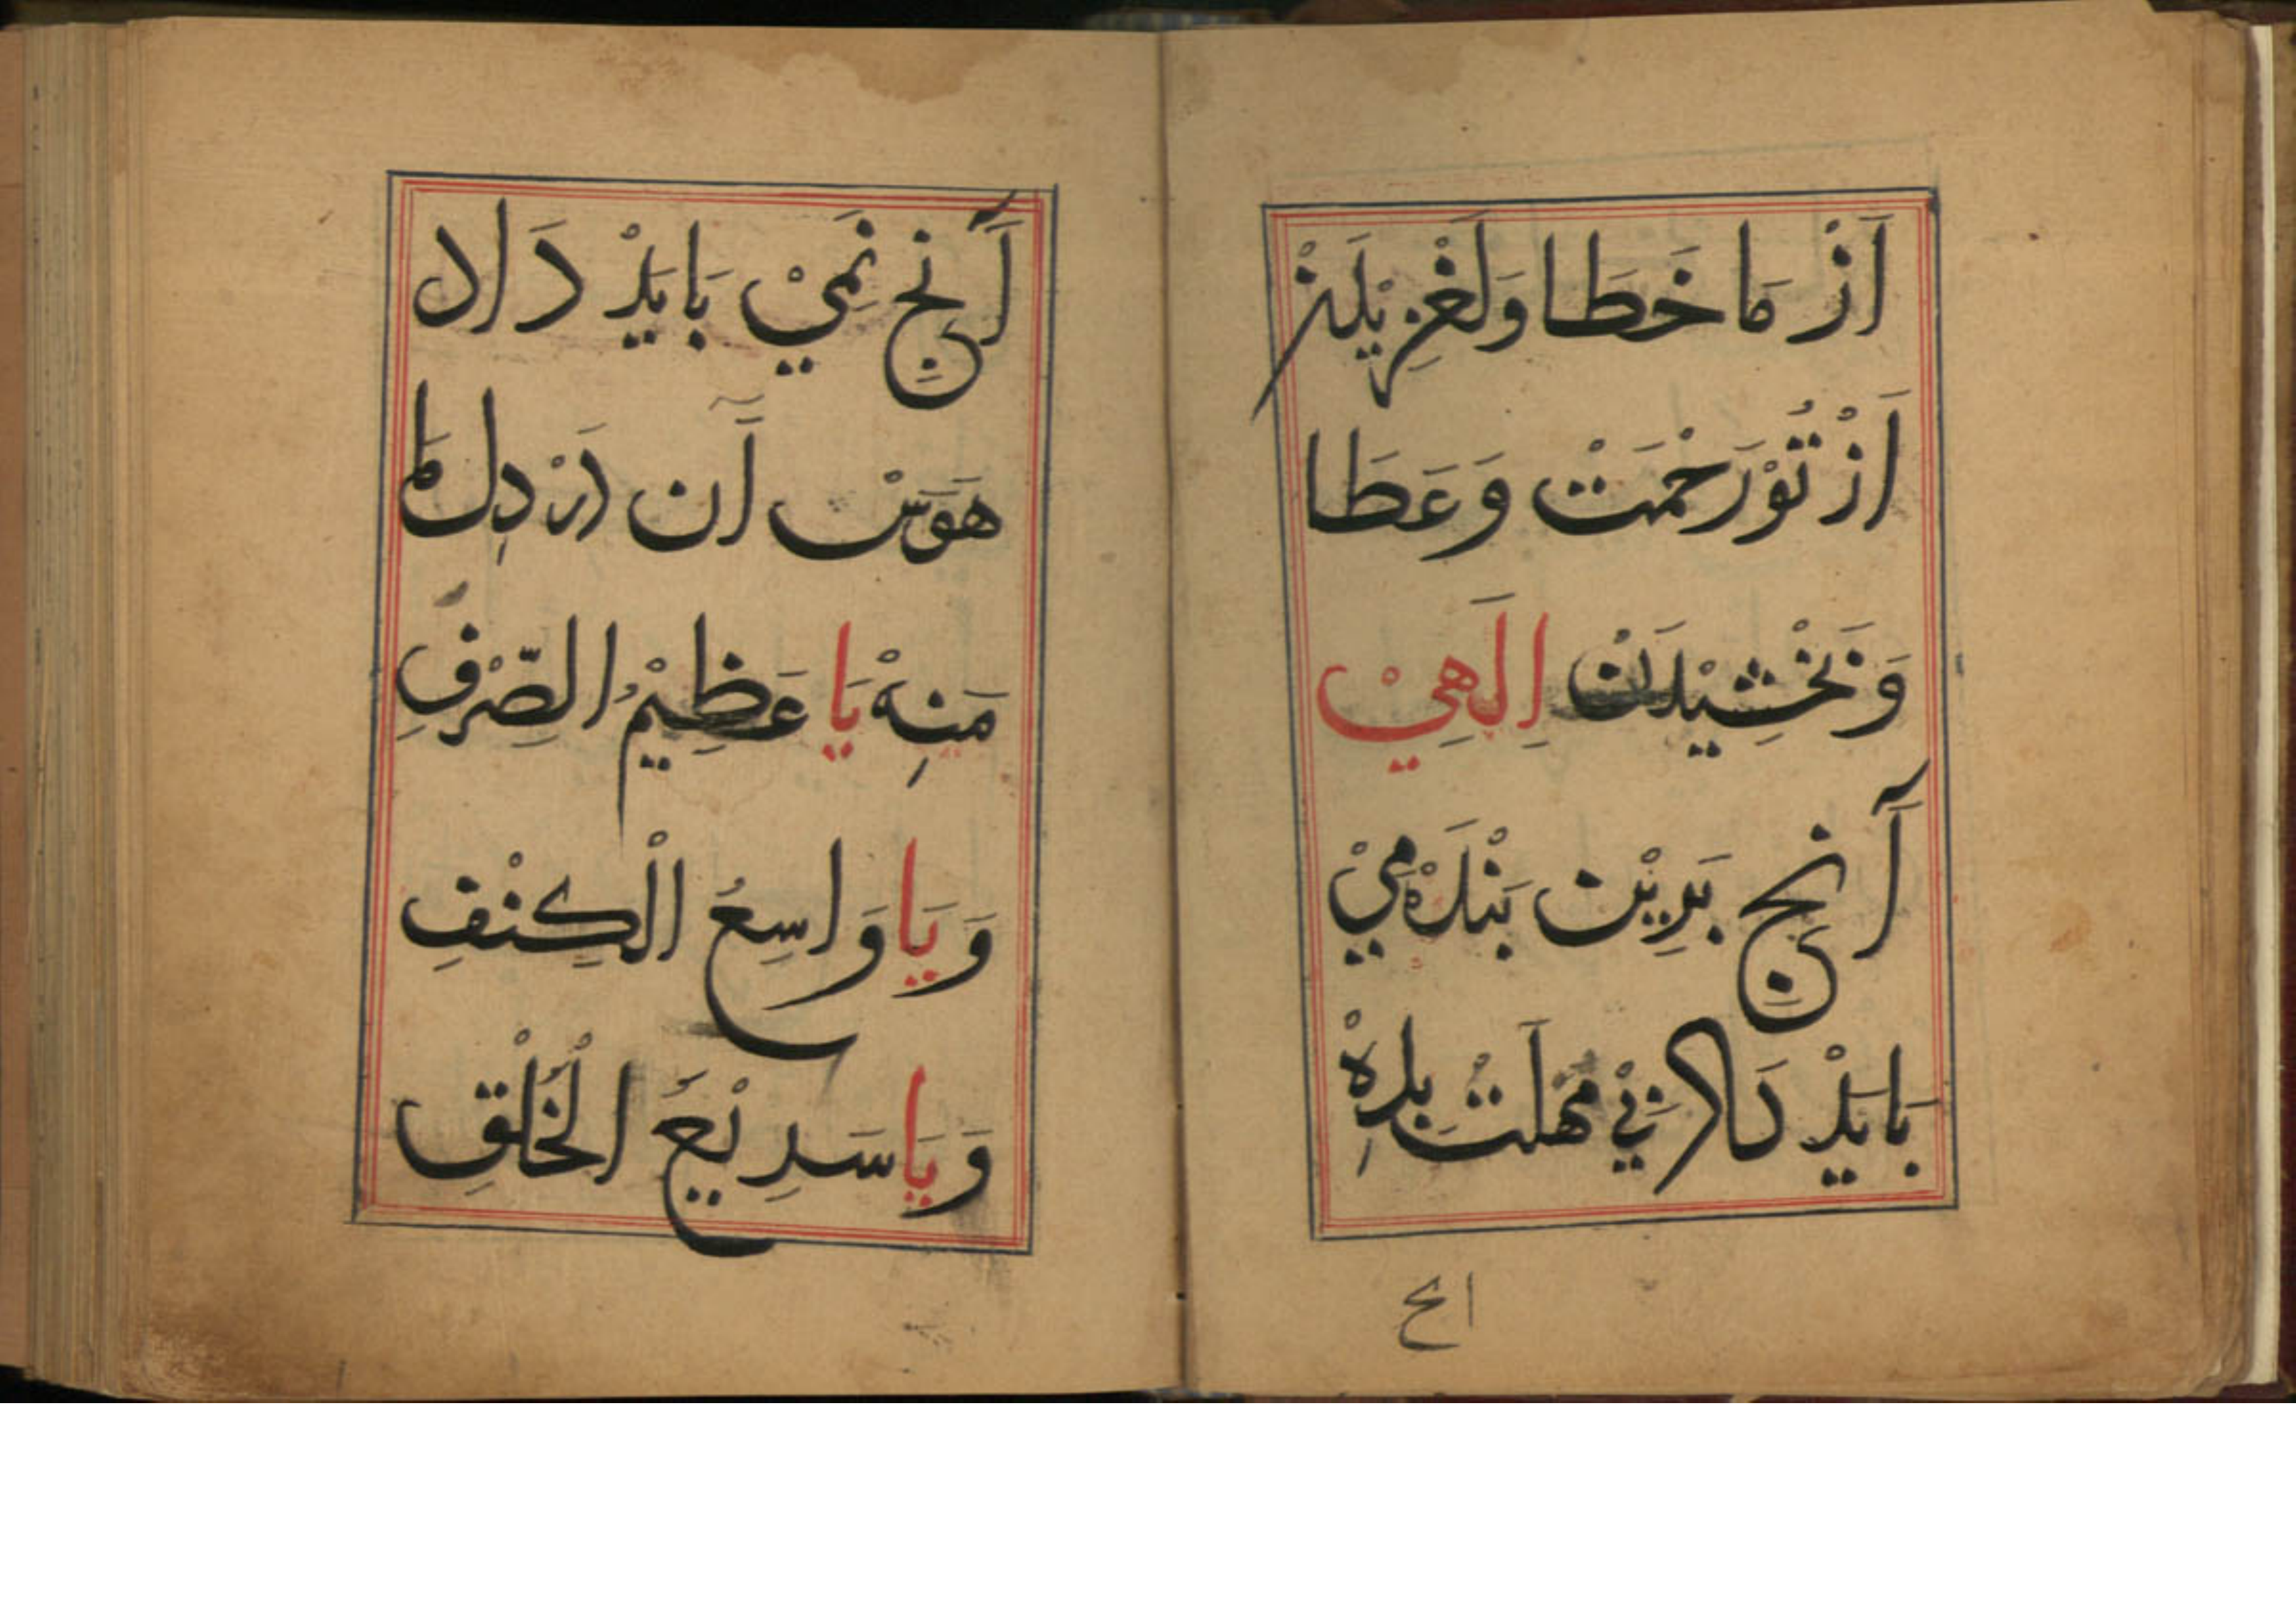 اَزْ مَا خَطَا وَلَغْزِيْدَنْ
اَزْ تُوْ رَحْمَتْ وَعَطَا
وَبَخْشِيْدَنْ اِلٰهِيْ
آنچِ بَرِيْن بَنْدَهْ مِيْ
بَايَدْ دَادْ بِيْ مُهْلَتْ بِدِهْ
الخ
آنچِ نَمِيْ بَايَدْ دَاد
هَوَسْ آن دَرْ دِل مَا
مَنِهْ يَا عَظِيْمُ الصَّرْفِ
وَيَا وَاسِعُ الْكَنْفِ
وَيَا سَرِيْعُ الْخَلْقِ